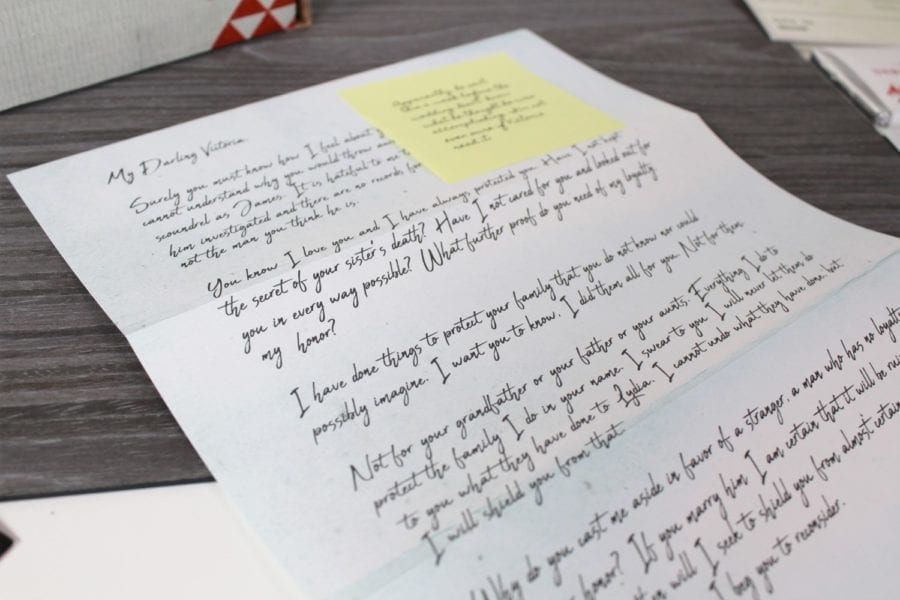 Apparently he sent
this a week before the
wedding. Don't know
what he thought he was
accomplishing
even sure if Victoria
read it.
My Darling Victoria
Surely you must know how I feel about
cannot understand why you would throw
scoundrel as James. It is hateful to me
him investigated and there are no records
not the man you think he is.
You know I love you and I have always protected you. Have I not kept
the secret of your sister's death? Have I not cared for you and looked out for
you in every way possible? What further proof do you need of my loyalty
my honor?
I have done things to protect your family that you do not know nor could
possibly imagine. I want you to know. I did them all for you. Not for them.
Not for your grandfather or your father or your aunts. Everything I do to
protect the family I do in your name. I swear to you I will never let them do
to you what they have done to Lydia. I cannot undo what they have done but
I will shield you from that.
Why do you cast me aside in favor of a stranger, a man who has no loyalty
honor? If you marry him I am certain that it will be
will I seek to shield you from almost certain
I beg you to reconsider.